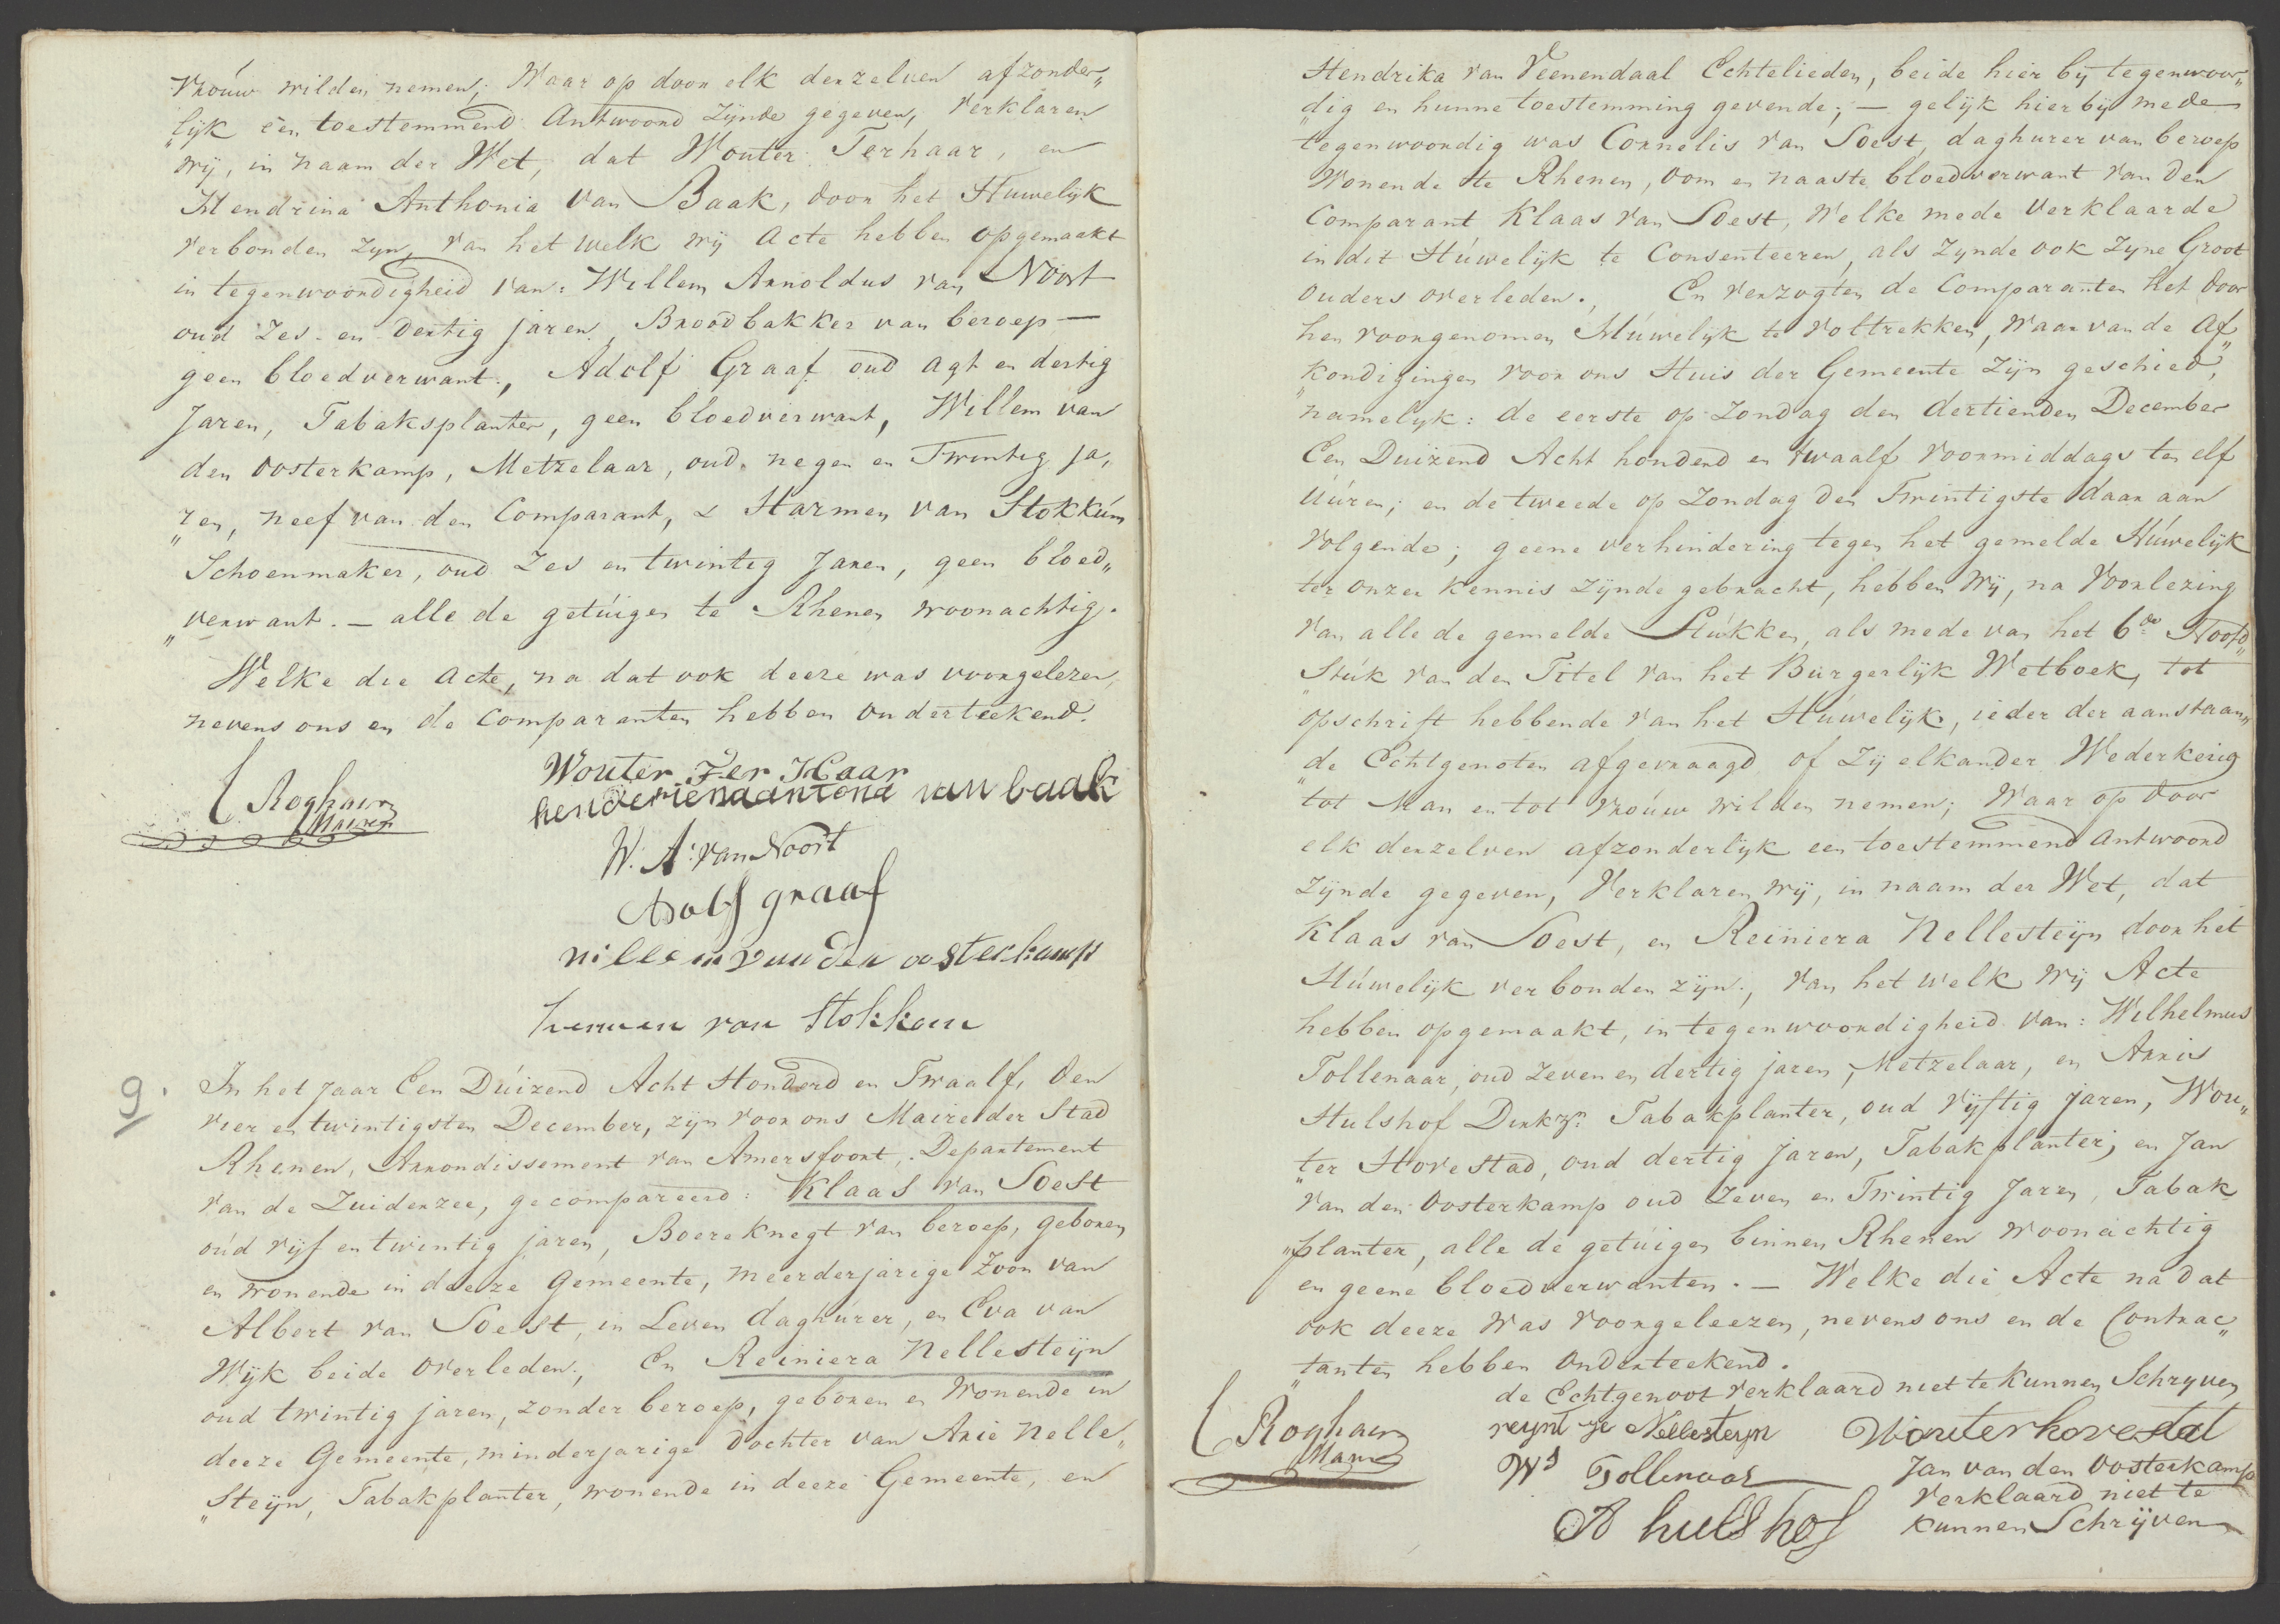 Vrouw wilden nemen; Waar op door elk derzelven afzonder„
„lijk een toestemmend Antwoord Zijnde gegeven, Verklaren
wij, in naam der Wet, dat Wouter Terhaar, en
Hendrina Anthonia Van Baak, door het Huwelijk
verbonden Zyn, van het welk wij Acte hebben opgemaakt
in tegenwoordigheid van: Willem Arnoldus van Noort
oud Zes- en Dertig jaren, Broodbakker van beroep —
geen bloedverwant., Adolf Graaf oud agt en dertig
Jaren, Tabaksplanter, geen bloedverwant, Willem van
den Oosterkamp, Metzelaar, oud negen en Twintig Ja„
„ren, neef van den Comparant, & Harmen van Stokkúm
Schoenmaker, oud Zes en twintig Jaren, geen bloed„
„verwant. — alle de getúigen te Rhenen woonachtig.
Welke die Acte, na dat ook deeze was voorgelezen,
nevens ons en de Comparanten hebben Onderteekend.
Wouter Ter Haar
henderienaantona van baak
C Roghair
Maire
W. A. van Noort
Adolf graaf
willem van den oosterkamp
hermen van Stokkom
9.
In het jaar Een Dúizend Acht Honderd en Twaalf, den
vier en twintigsten December, zijn voor ons Maire der Stad
Rhenen, Arrondissement van Amersfoort, Departement
van de Zuiderzee, gecompareerd: Klaas van Soest
oúd vijf en twintig jaren, Boere Knegt van beroep, geboren
en wonende in deeze Gemeente, meerderjarige Zoon van
Albert van Soest, in Leven daghúrer, en Eva van
Wijk beide overleden., En Reiniera Nellesteijn
oud twintig jaren, zonder beroep, geboren en Wonende in
deeze Gemeente, minderjarige Dochter van Arie Nelle„
„Steijn, Tabakplanter, wonende in deeze Gemeente, en
Hendrika van Veenendaal Echtelieden, beide hier bij tegenwoor„
„dig en hunne toestemming gevende; — gelijk hier bij mede
tegenwoordig was Cornelis van Soest, daghurer van beroep
Wonende te Rhenen, oom en naaste bloedverwant van den
Comparant Klaas van Soest, Welke mede Verklaarde
in dit Húwelijk te Consenteeren, als Zynde ook Zyne Groot
Ouders overleden., En verzogten de Comparanten het door
hen voorgenomen Húwelijk te voltrekken, waar van de Af„
„kondigingen voor ons Huis der Gemeente Zijn geschied,
namelyk: de eerste op Zondag den dertienden December
Een Duizend Acht honderd en twaalf Voormiddags ten elf
Uúren; en de tweede op Zondag den Twintigste daar aan
Volgende; geene verhindering tegen het gemelde Húwelijk
ter onzer kennis zijnde gebracht, hebben Wij, na Voorlezing
van alle de gemelde Stúkken, als mede van het 6de Hoofd„
„Stúk van den Titel van het Burgerlijk Wetboek, tot
opschrift hebbende van het Húwelijk, ieder der aanstaan„
„de Echtgenoten afgevraagd of Zij elkander Wederkerig
tot Man en tot Vroúw wilden nemen; Waar op door
elk derzelven afzonderlijk een toestemmend Antwoord
Zijnde gegeven, Verklaren wij, in naam der Wet, dat
Klaas van Soest, en Reiniera Nellesteijn door het
Húwelijk verbonden zijn., van het welk Wij Acte
hebben opgemaakt, in tegenwoordigheid van: Wilhelmus
Tollenaar, oud Zeven en dertig jaren, Metzelaar, en Arris
Hulshof Dirkzn. Tabakplanter, oud Vijftig jaren, Wou„
„ter Hovestad, oud dertig jaren, Tabakplanter, en Jan
van den Oosterkamp oud Zeven en Twintig Jaren, Tabak
„planter, alle de getúigen binnen Rhenen woonachtig
en geene bloedverwanten. — Welke die Acte na dat
ook deeze Was voorgeleezen, nevens ons en de Contrac„
„tanten hebben Onderteekend.
de Echtgenoot Verklaard niet te Kunnen Schryven
C Roghair
Maire
reynt je Nellesteyn
Wouter hovestat
Ws Tollenaar
Jan van den Oosterkamp
Verklaard niet te
Kunnen Schrijven
A hulshof